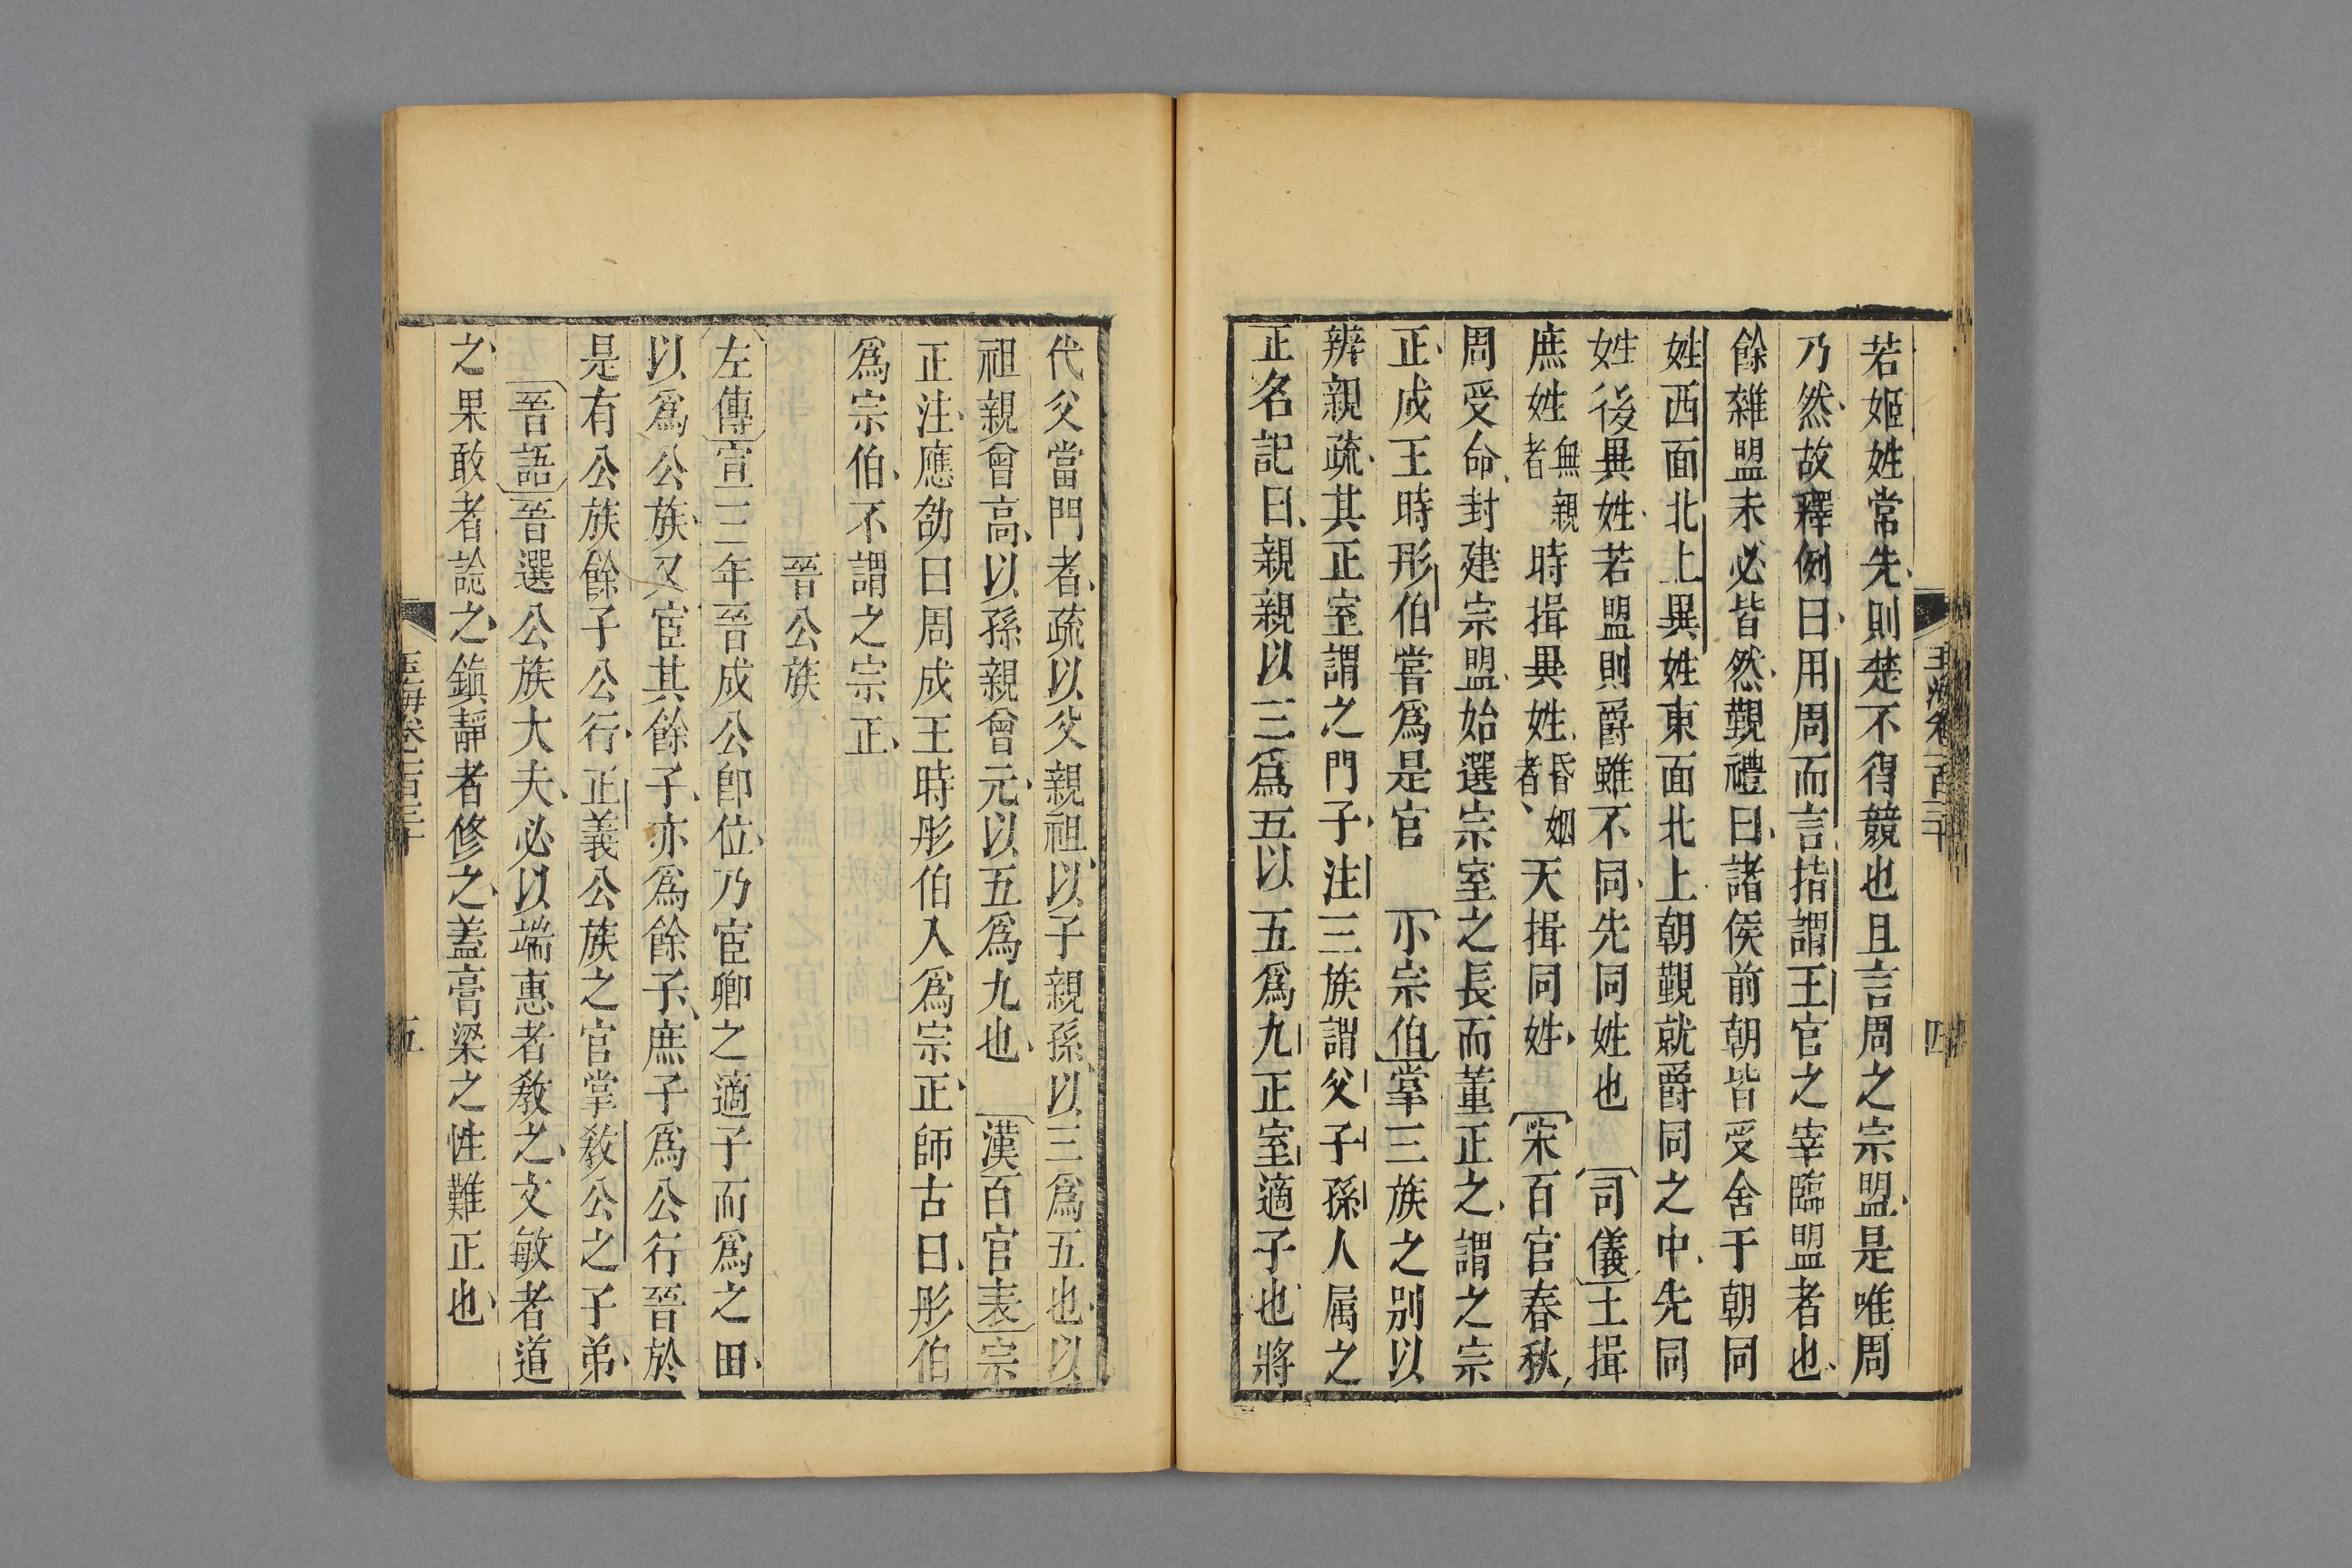 若姬姓常先則楚不得競也且言周之宗盟是唯周
乃然故釋例曰用周而言指謂王官之宰臨盟者也
餘雜盟未必皆然覲禮曰諸侯前朝皆受舍于朝同
姓西面北上異姓東面北上朝覲就爵同之中先同
姓後異姓若盟則爵雖不同先同姓也 司儀土揖
庶姓無親者時揖異姓昏姻者天揖同姓 宋百官春秋
周受命封建宗盟始選宗室之長而董正之謂之宗
正成王時彤伯嘗爲是官 小宗伯掌三族之別以
辨親疏其正室謂之門子注三族謂父子孫人属之
正名記曰親親以三爲五以五爲九正室適子也將
代父當門者疏以父親祖以子親孫以三爲五也以
祖親曾高以孫親曾元以五爲九也 漢百官表宗
正注應劭曰周成王時彤伯入爲宗正師古曰彤伯
爲宗伯不謂之宗正
晉公族
左傳宣二年晉成公卽位乃宦卿之適子而爲之田
以爲公族又宦其餘子亦爲餘子庶子爲公行晉於
是有公族餘子公行正義公族之官掌敎公之子弟
晉語晉選公族大夫必以端惠者敎之文敏者道
之果敢者諗之鎭靜者修之蓋膏粱之性難正也
玉海卷一百三十
四
玉海卷一百三十
五